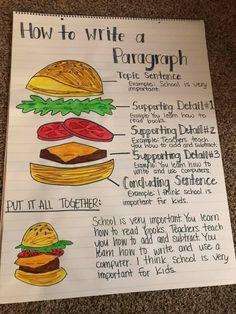 How to write a
Paragraph
Topic Sentence
Example: School is very
important.
Supporting Detail #1
Example: You learn how to
read books.
Supporting Detail #2
Example: Teachers teach
you how to add and subtract.
Supporting Detail #3
Example: You learn how to write
and use computers.
Concluding Sentence
Example: I think school is
important for kids.
PUT IT ALL TOGETHER:
School is very important. You learn
how to read books. Teachers teach
you how to add and subtract. You
learn how to write and use a
computer. I think school is very
important for kids.